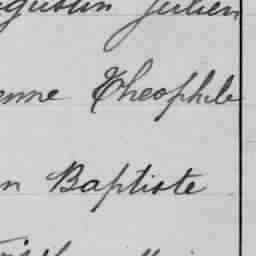 gustin Julien
enne Théophile
n Baptiste